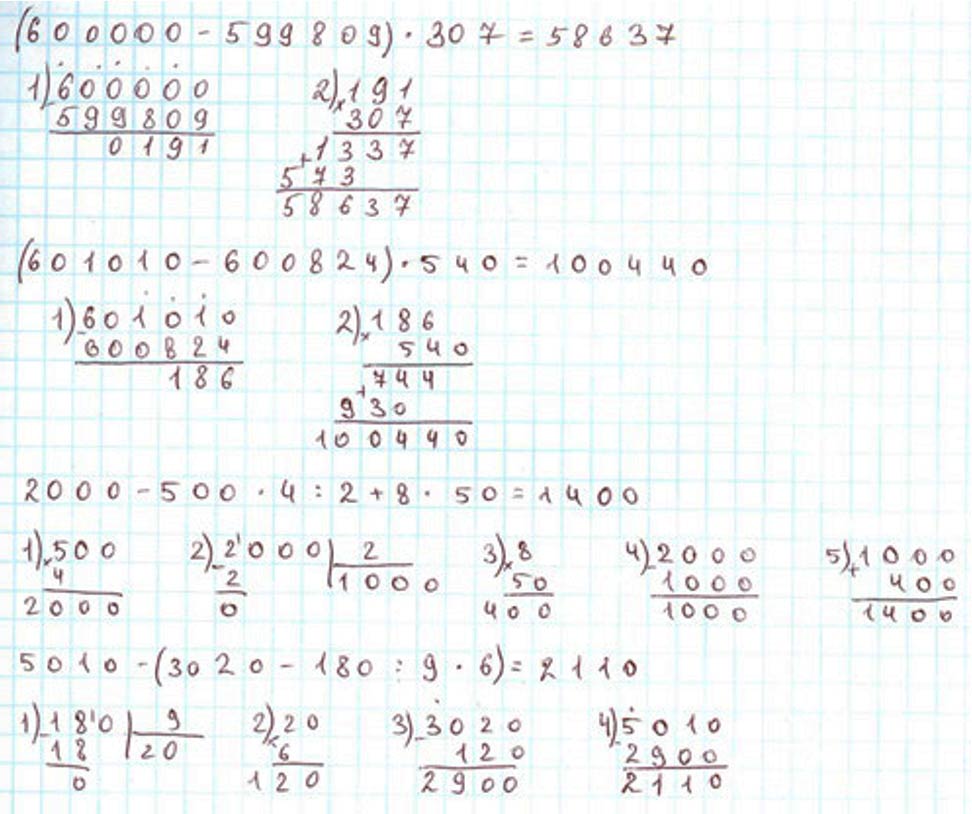 (600000 - 599809) · 307 = 58637
1) - 600000 2) × 191
599809 307
0191 + 1337
573
58637
(601010 - 600824) · 540 = 100440
1) - 601010 2) × 186
600824 540
186 + 744
930
100440
2000 - 500 · 4 : 2 + 8 · 50 = 1400
1) × 500 2) - 2'000 | 2 3) × 8 4) - 2000 5) + 1000
4 2 1000 50 1000 400
2000 0 400 1000 1400
5010 - (3020 - 180 : 9 · 6) = 2110
1) - 18'0 | 9 2) × 20 3) - 3020 4) - 5010
18 20 6 120 2900
0 120 2900 2110